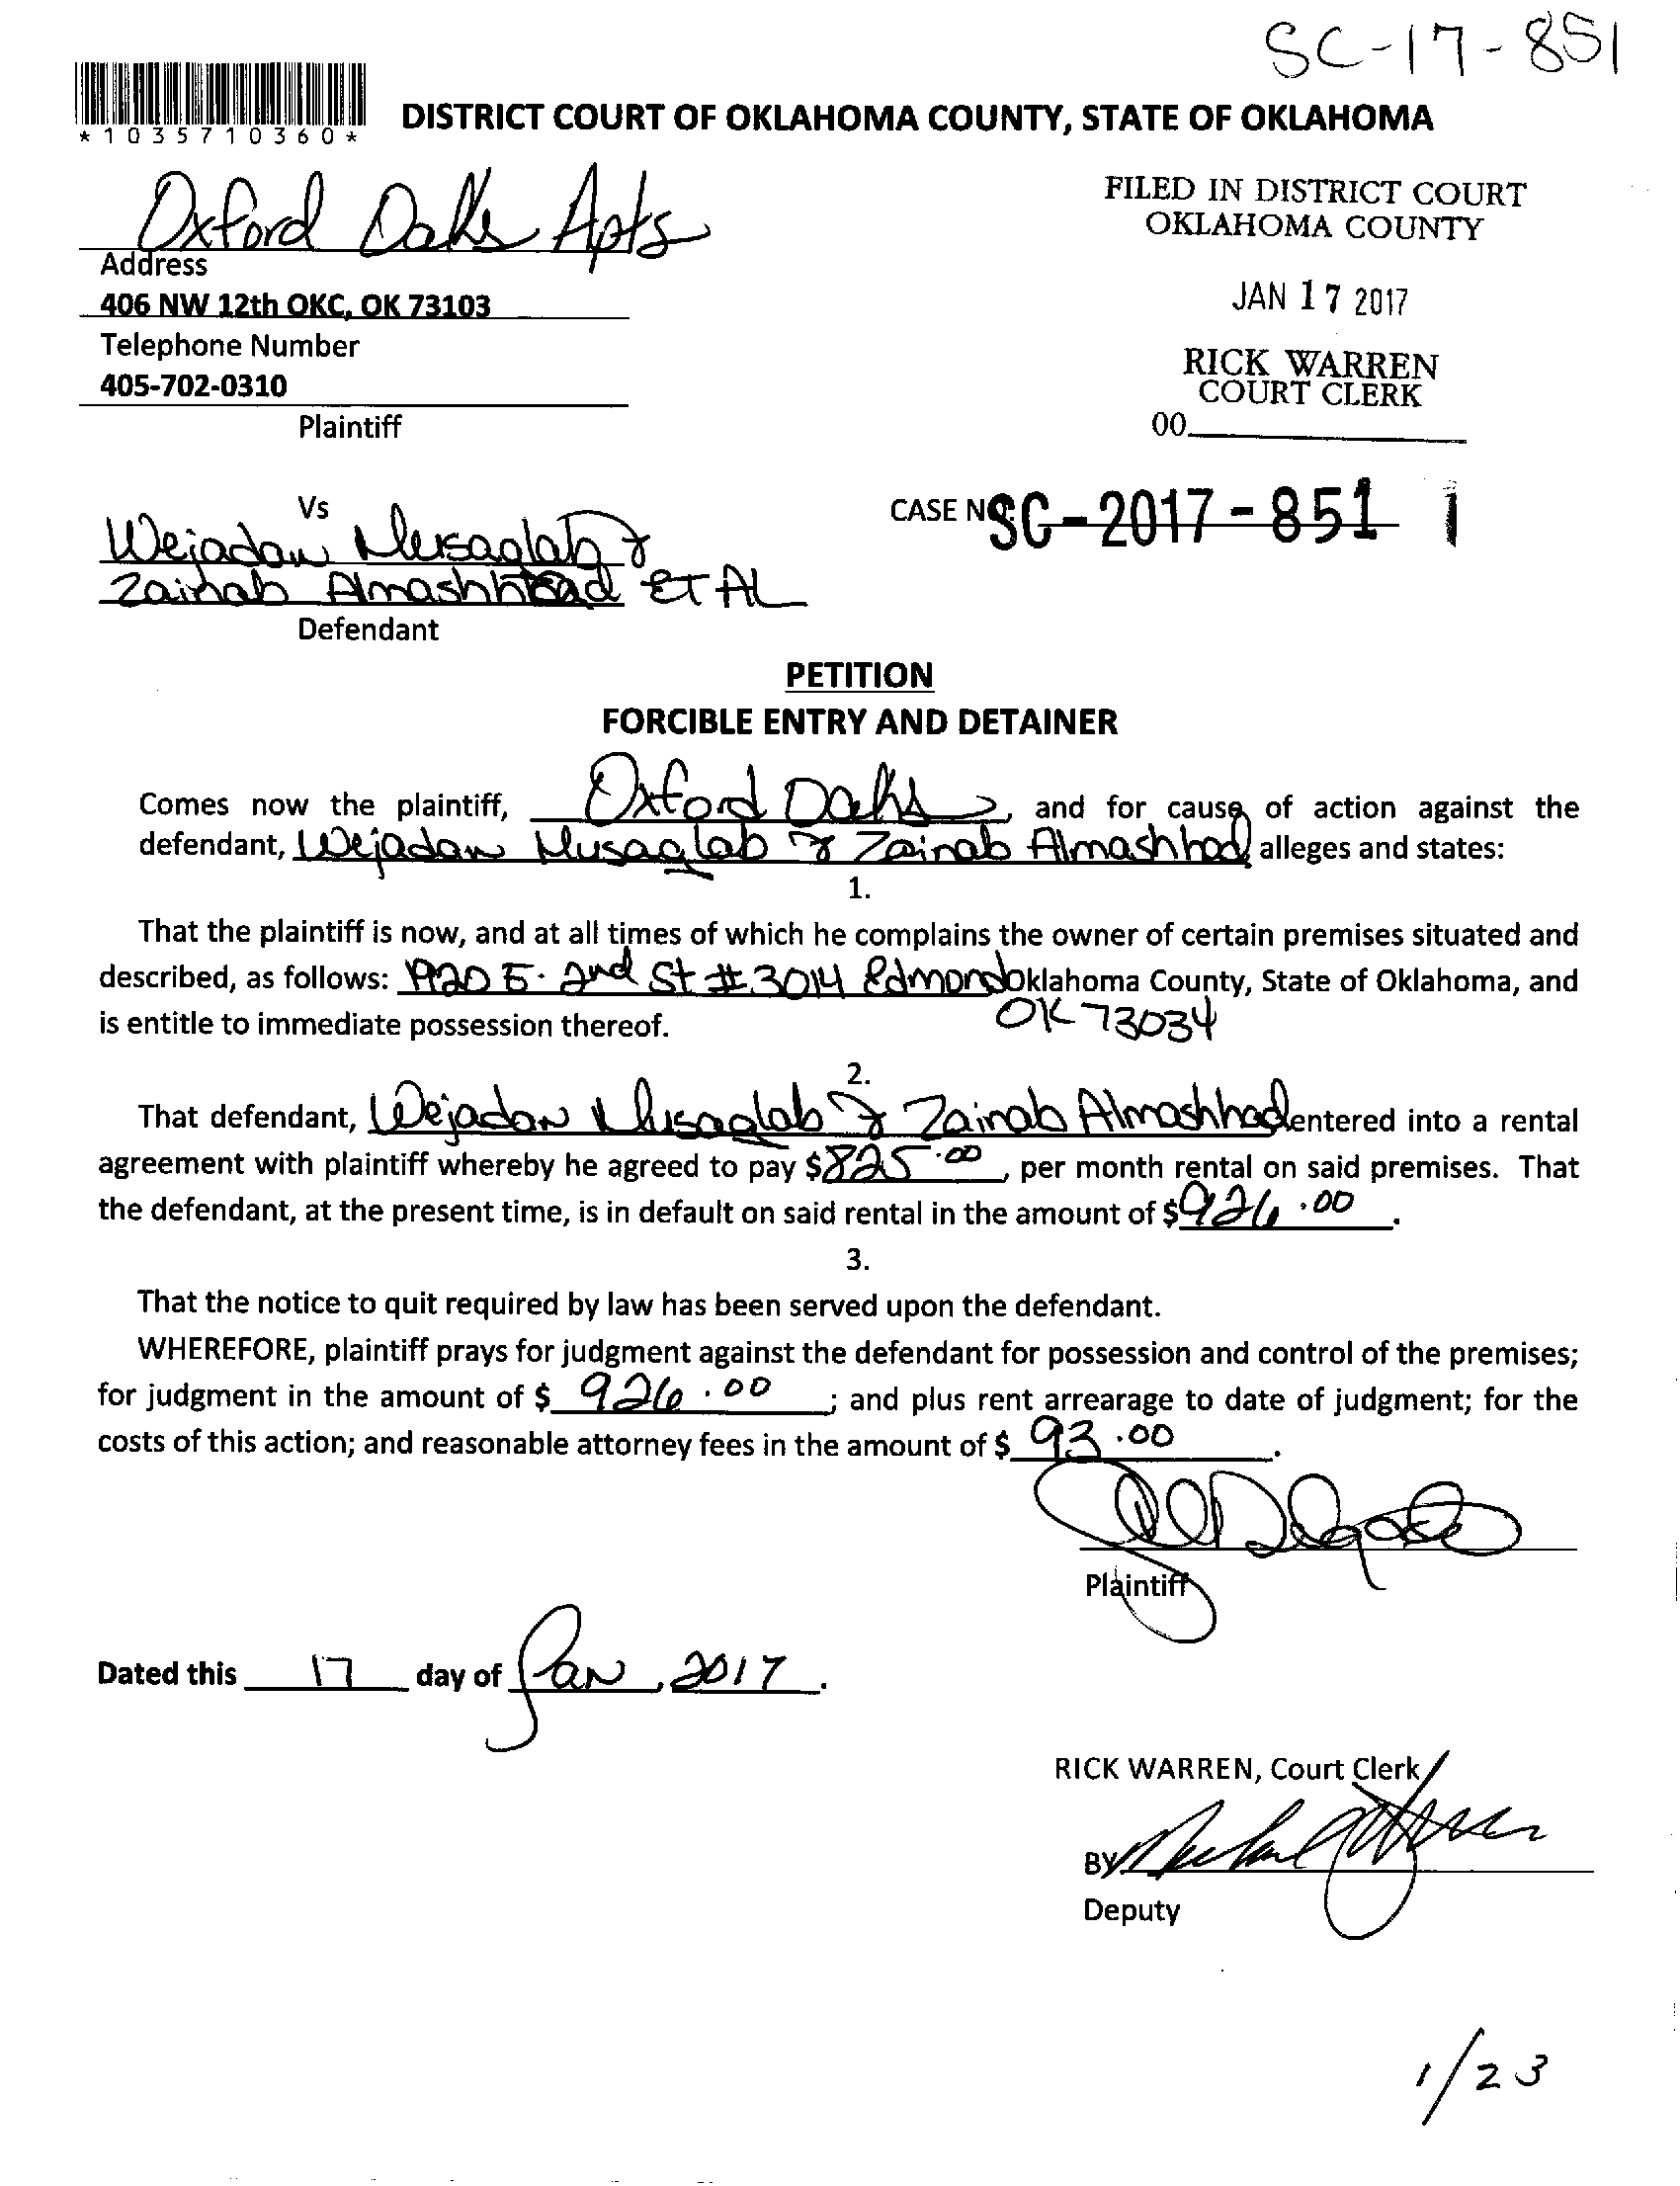 SC-17-851
*1035710360*
DISTRICT COURT OF OKLAHOMA COUNTY, STATE OF OKLAHOMA
Oxford Oaks Apts
Address
406 NW 12th OKC, OK 73103
Telephone Number
405-702-0310
Plaintiff
FILED IN DISTRICT COURT
OKLAHOMA COUNTY
JAN 17 2017
RICK WARREN
COURT CLERK
00
Vs
Wejadan Musaglab &
Zainab Almashhad ET AL
Defendant
CASE NO SC-2017-851
PETITION
FORCIBLE ENTRY AND DETAINER
Comes now the plaintiff, Oxford Oaks, and for cause of action against the
defendant, Wejadan Musaglab & Zainab Almashhad alleges and states:
1.
That the plaintiff is now, and at all times of which he complains the owner of certain premises situated and
described, as follows: 1920 E. 2nd St #3014 Edmond Oklahoma County, State of Oklahoma, and
OK 73034
is entitle to immediate possession thereof.
2.
That defendant, Wejadan Musaglab & Zainab Almashhad entered into a rental
agreement with plaintiff whereby he agreed to pay $825.00, per month rental on said premises. That
the defendant, at the present time, is in default on said rental in the amount of $926.00.
3.
That the notice to quit required by law has been served upon the defendant.
WHEREFORE, plaintiff prays for judgment against the defendant for possession and control of the premises;
for judgment in the amount of $ 926.00; and plus rent arrearage to date of judgment; for the
costs of this action; and reasonable attorney fees in the amount of $ 93.00.
Plaintiff
Dated this 17 day of Jan, 2017.
RICK WARREN, Court Clerk
BY
Deputy
1/23